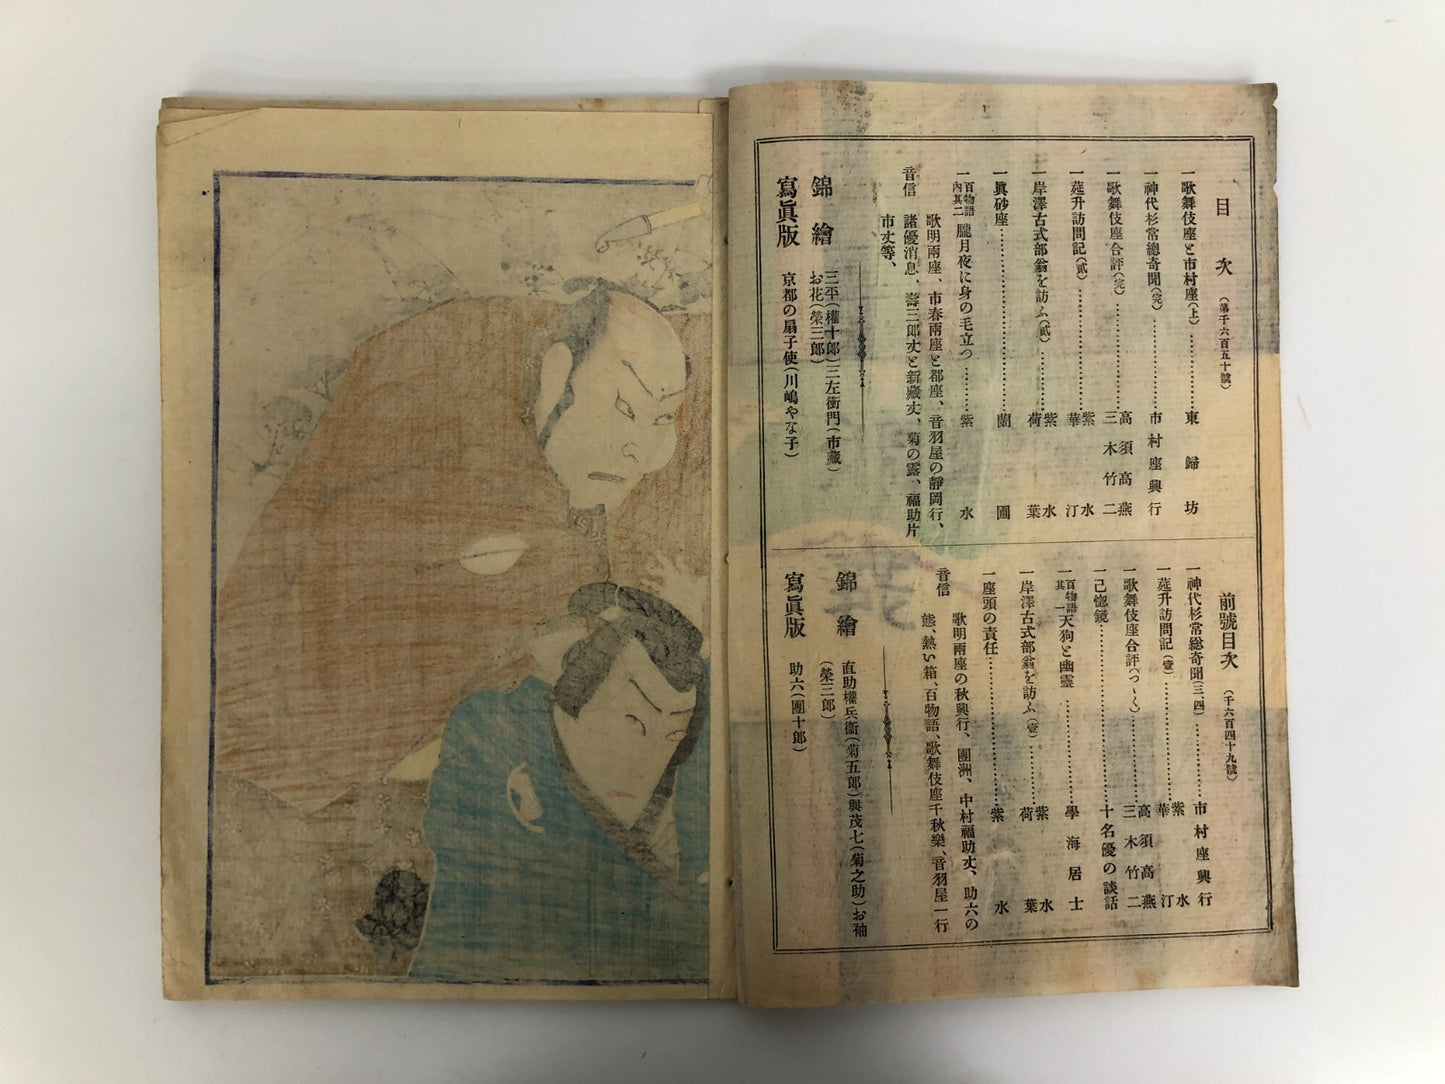 目次（第千六百五十號）
一歌舞伎座と市村座（上）…………東歸坊
一神代杉常總奇聞（完）…………市村座興行
一歌舞伎座合評（完）…………高須高燕 三木竹二
一莚升訪問記（貳）…………紫水 華汀
一岸澤古式部翁を訪ふ（貳）…………紫水 荷葉
一眞砂座…………圃
一百物語內其二 朧月夜に身の毛立つ…………紫水
音信
歌明兩座、市春兩座と都座、音羽屋の靜岡行、
諸優消息、壽三郎丈と新藏丈、菊の露、福助片
市丈等、
錦繪
三平（權十郎）三左衛門（市藏）
お花（榮三郎）
寫眞版
京都の扇子使（川嶋やな子）
前號目次（千六百四十九號）
一神代杉常総奇聞（三、四）…………市村座興行
一莚升訪問記（壹）…………紫水 華汀
一歌舞伎座合評（つゞく）…………高須高燕 三木竹二
一己惚鏡…………十名優の談話
一百物語其一 天狗と幽靈…………學海居士
一岸澤古式部翁を訪ふ（壹）…………紫水 荷葉
一座頭の責任…………紫水
音信
歌明兩座の秋興行、團洲、中村福助丈、助六の
態、熱い箱、百物語、歌舞伎座千秋樂、音羽屋一行
錦繪
直助權兵衞（菊五郎）與茂七（菊之助）お袖
（榮三郎）
寫眞版
助六（團十郎）